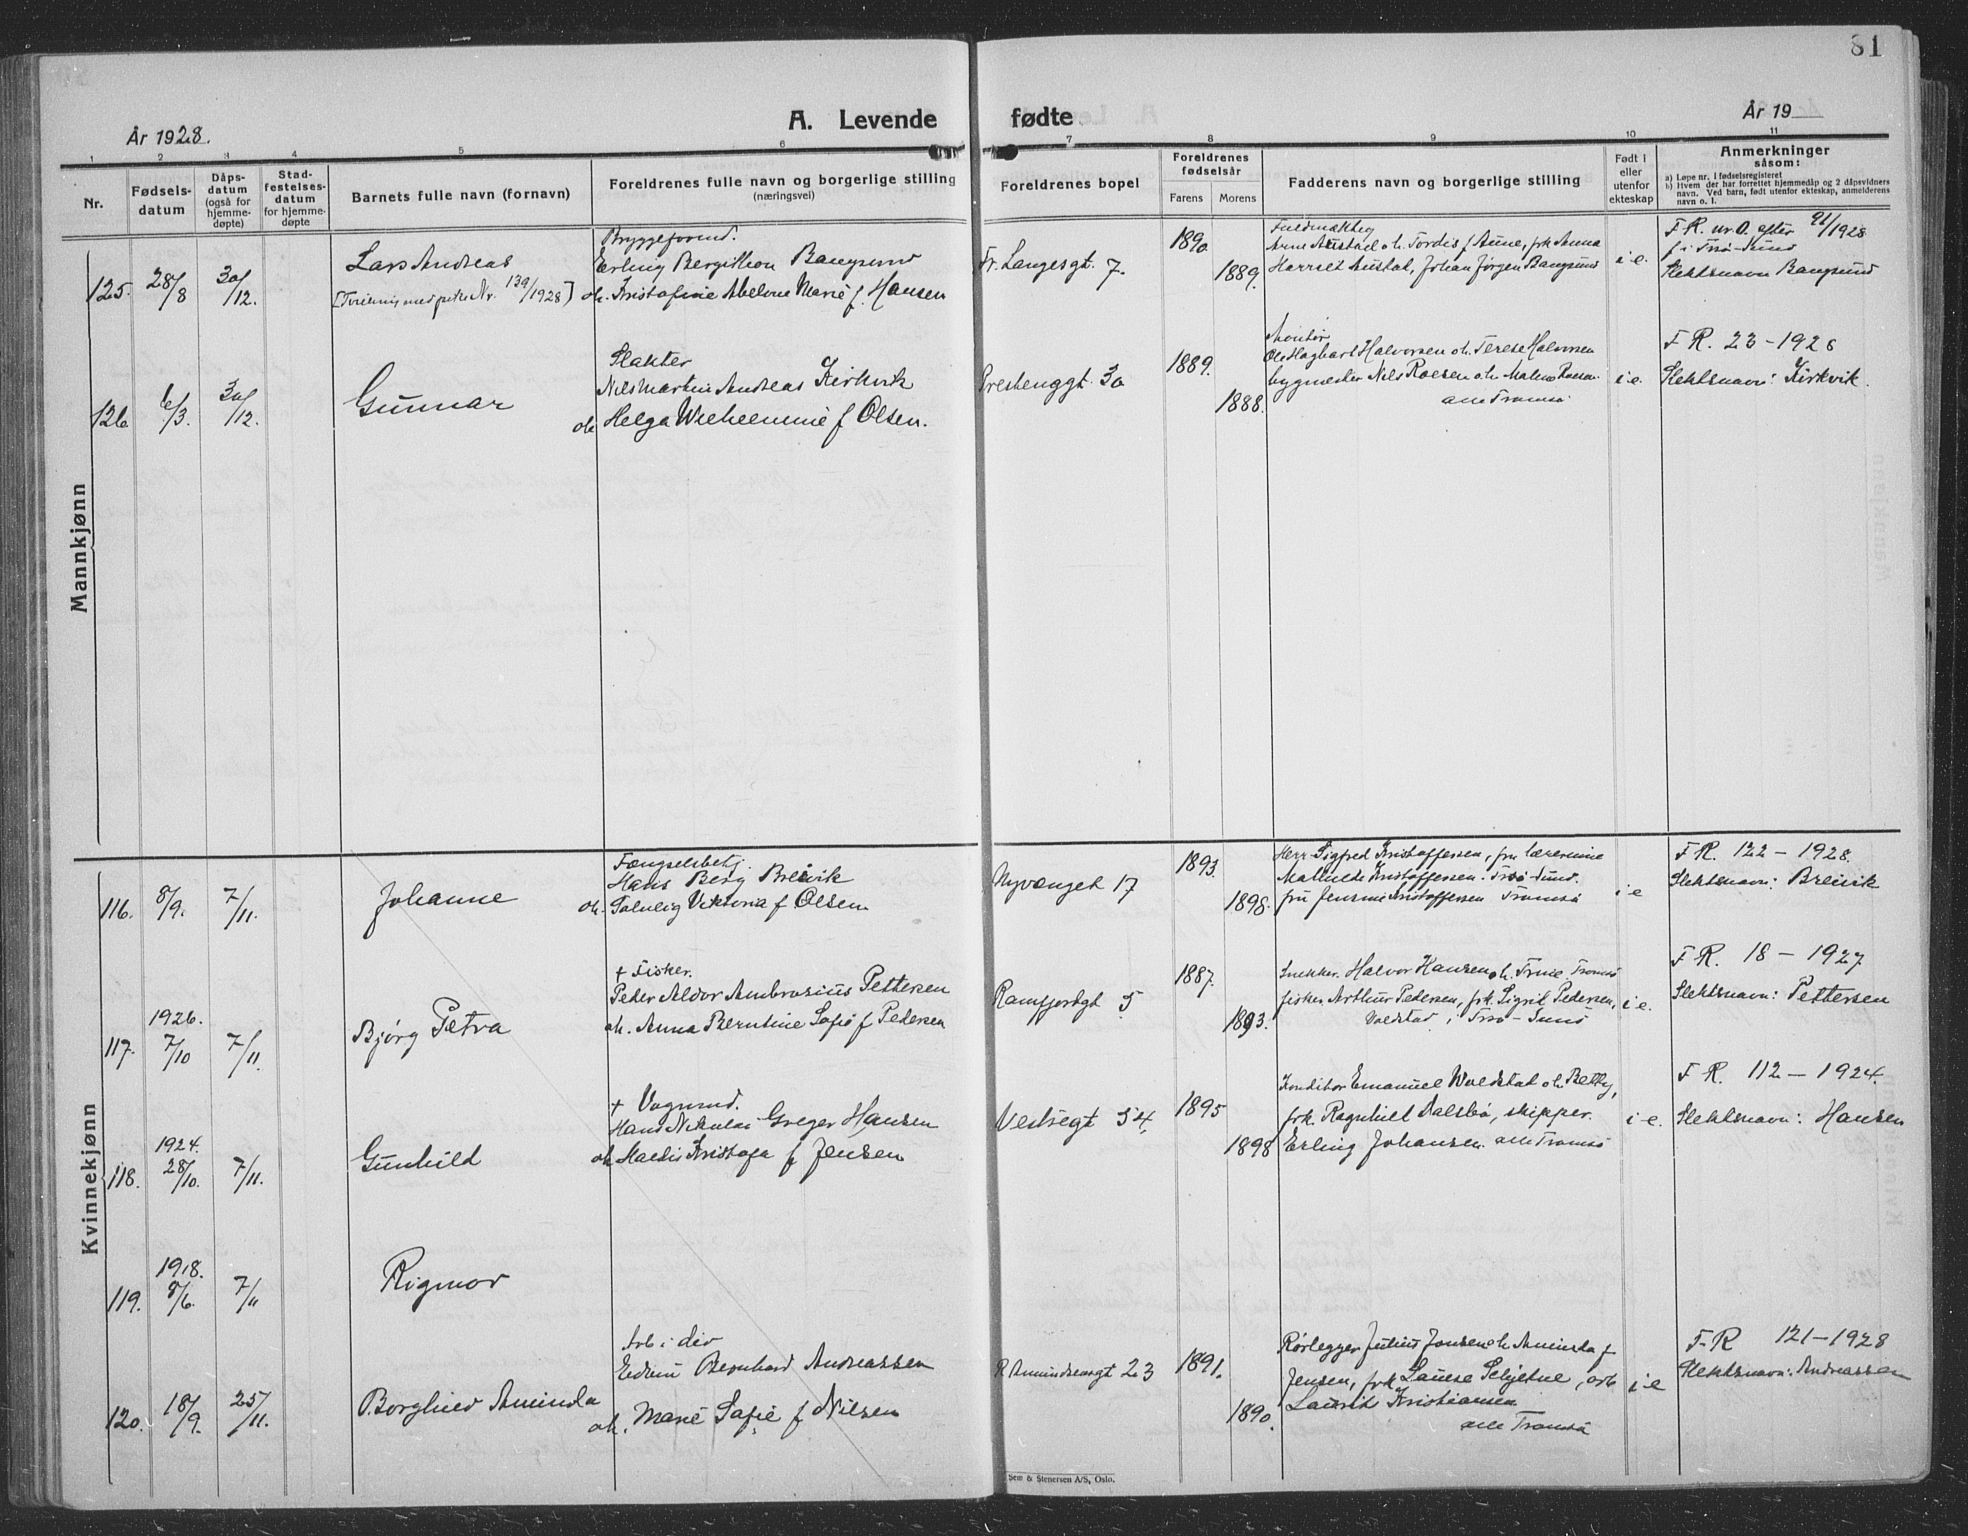 81
A. Levende fødte
År 1928.
År 19
1 2 3 4 5 6 7 8 9 10 11
Nr.
Fødsels-
datum
Dåps-
datum
(også for
hjemme-
døpte)
Stad-
festelses-
datum
for hjemme-
døpte
Barnets fulle navn (fornavn)
Foreldrenes fulle navn og borgerlige stilling
(næringsvei)
Foreldrenes bopel
Foreldrenes
fødselsår
Farens Morens
Fadderens navn og borgerlige stilling
Født i
eller
utenfor
ekteskap
Anmerkninger
såsom:
a) Løpe nr. i fødselsregisteret
b) Hvem der har forrettet hjemmedåp og 2 dåpsvidners
navn. Ved barn, født utenfor ekteskap, anmelderens
navn o. l.
Mannkjønn
125. 28/8 30/12.
Lars Andreas
[Tvilling med pike Nr. 139/1928]
Erling Bergithon Bangsund
oh. Kristofine Abelone Marie f. Hansen
Fr. Langesgt. 7.
1890.
1889.
Arne Austad oh. Tordis f Aune, frk Anna
Harriet Austad, Johan Jørgen Bangsund
i e.
F. R. nr. 0. efter 91/1928
f. i Trsø-Sund
Slektsnavn Bangsund
126. 6/3. 30/12.
Gunnar
Slakter
Nils Martin Andreas Kirkvik
oh Helga Wilhelmine f Olsen.
Prestenggt. 30
1889.
1888.
Montør
Ole Hagbart Halvorsen oh. Terese Halvorsen
bygmester Nils Roesen oh. Malene Roesen
alle Tromsø.
i e.
F R. 23 - 1928
Slektsnavn: Kirkvik.
Kvinnekjønn
116. 8/9. 7/11.
Johanne
Fængselsbetj.
Hans Berg Breivik
oh. Solveig Viktoria f Olsen
Nyvænget 17
1893.
1898.
Herr Sigfred Kristoffersen, fru lærerinne
Mathilde Kristoffersen. Trsø-Sund.
fru Jensine Kristoffersen Tromsø
i e
F R. 122 - 1928.
Slektsnavn: Breivik
117. 1926. 7/10 7/11.
Bjørg Petra
+ Fisker.
Peder Aldor Ambrosius Pettersen
oh. Anna Berntine Sofie f Pedersen
Ramfjordgt 5
1887.
1893.
Snekker. Halvor Hansen oh. Trine, Tromsø
fisker Arthur Pedersen, frk. Sigrid Pedersen,
Voldstad i Trsø-Sund
i e.
F R. 18 - 1927
Slektsnavn: Pettersen
118. 1924. 28/10. 7/11.
Gunhild
+ Vognmd.
Hans Nikolai Greger Hansen
oh Haldis Kristofa f Jensen
Vestregt 54.
1895
1898
Konditor Emanuel Woldstad oh. Betty,
frk. Ragnhild Dalsbø, skipper.
Erling Johansen. alle Tromsø
i e.
F R. 112 - 1924.
Slektsnavn: Hansen
119. 1918. 8/6. 7/11
Rigmor
120. 18/9. 25/11.
Borghild Aminda
Arb i div
Edvin Bernhard Andreassen
oh. Marie Sofie f Nilsen
R. Amundsensgt 23
1891.
1890.
Rørlegger Julius Jensen oh. Aminda f
Jensen, frk Lauise Schjelne, arb
Laurits Kristiansen
alle Tromsø
i e
F-R 121 - 1928
Slektsnavn: Andreassen
Sem & Stenersen A/S, Oslo.